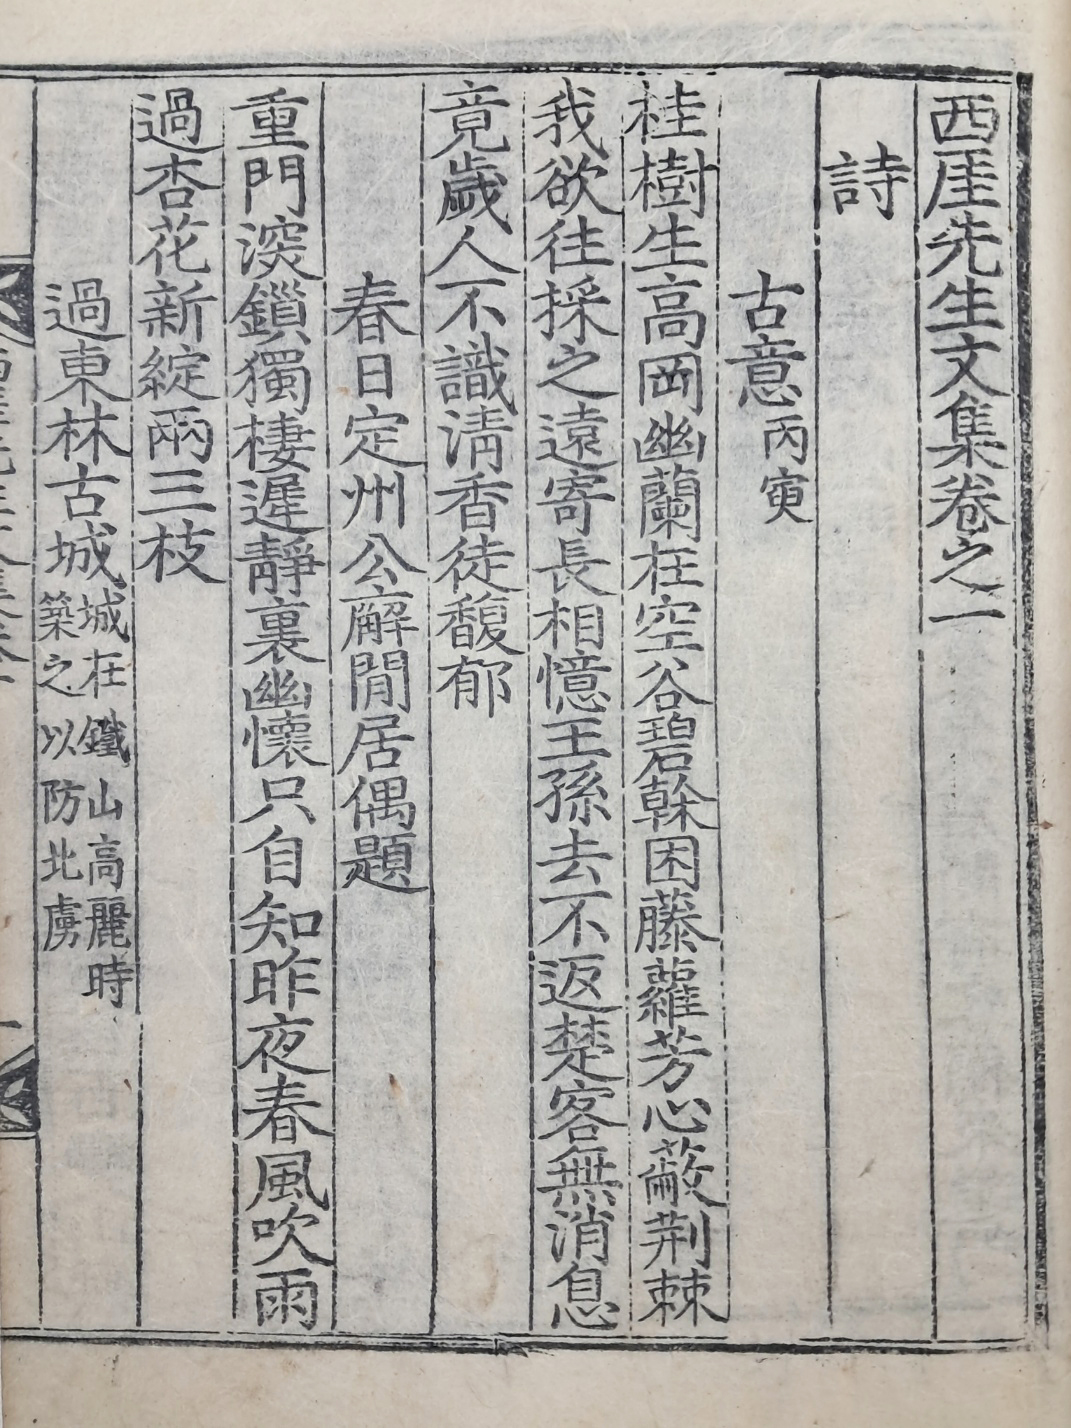 西厓先生文集卷之一
詩
古意丙寅
桂樹生高岡幽蘭在空谷碧榦困藤蘿芳心蔽荆棘
我欲往採之遠寄長相憶王孫去不返楚客無消息
竟歲人不識淸香徒馥郁
春日定州公廨閒居偶題
重門深鎖獨棲遲靜裏幽懷只自知昨夜春風吹雨
過杏花新綻兩三枝
過東林古城城在鐵山高麗時
築之以防北虜